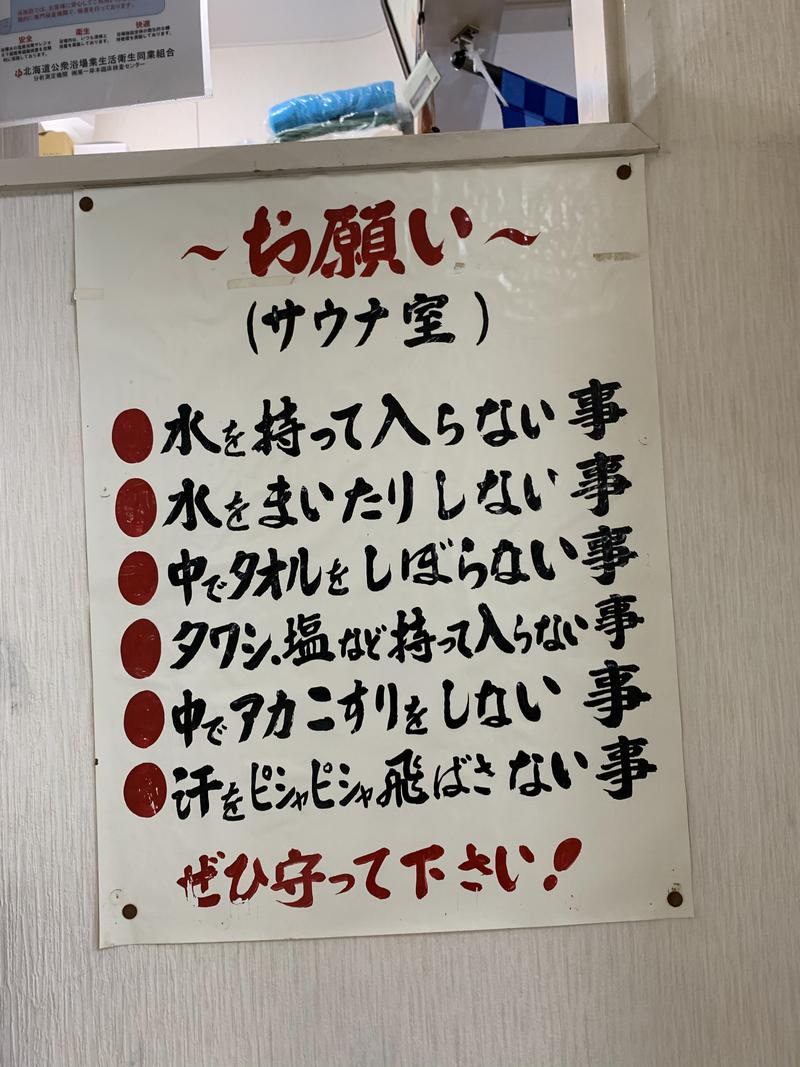 安全
衛生
快適
北海道公衆浴場業生活衛生同業組合
~お願い~
(サウナ室)
●水を持って入らない事
●水をまいたりしない事
●中でタオルをしぼらない事
●タワシ、塩など持って入らない事
●中でアカこすりをしない事
●汗をピシャピシャ飛ばさない事
ぜひ守って下さい!